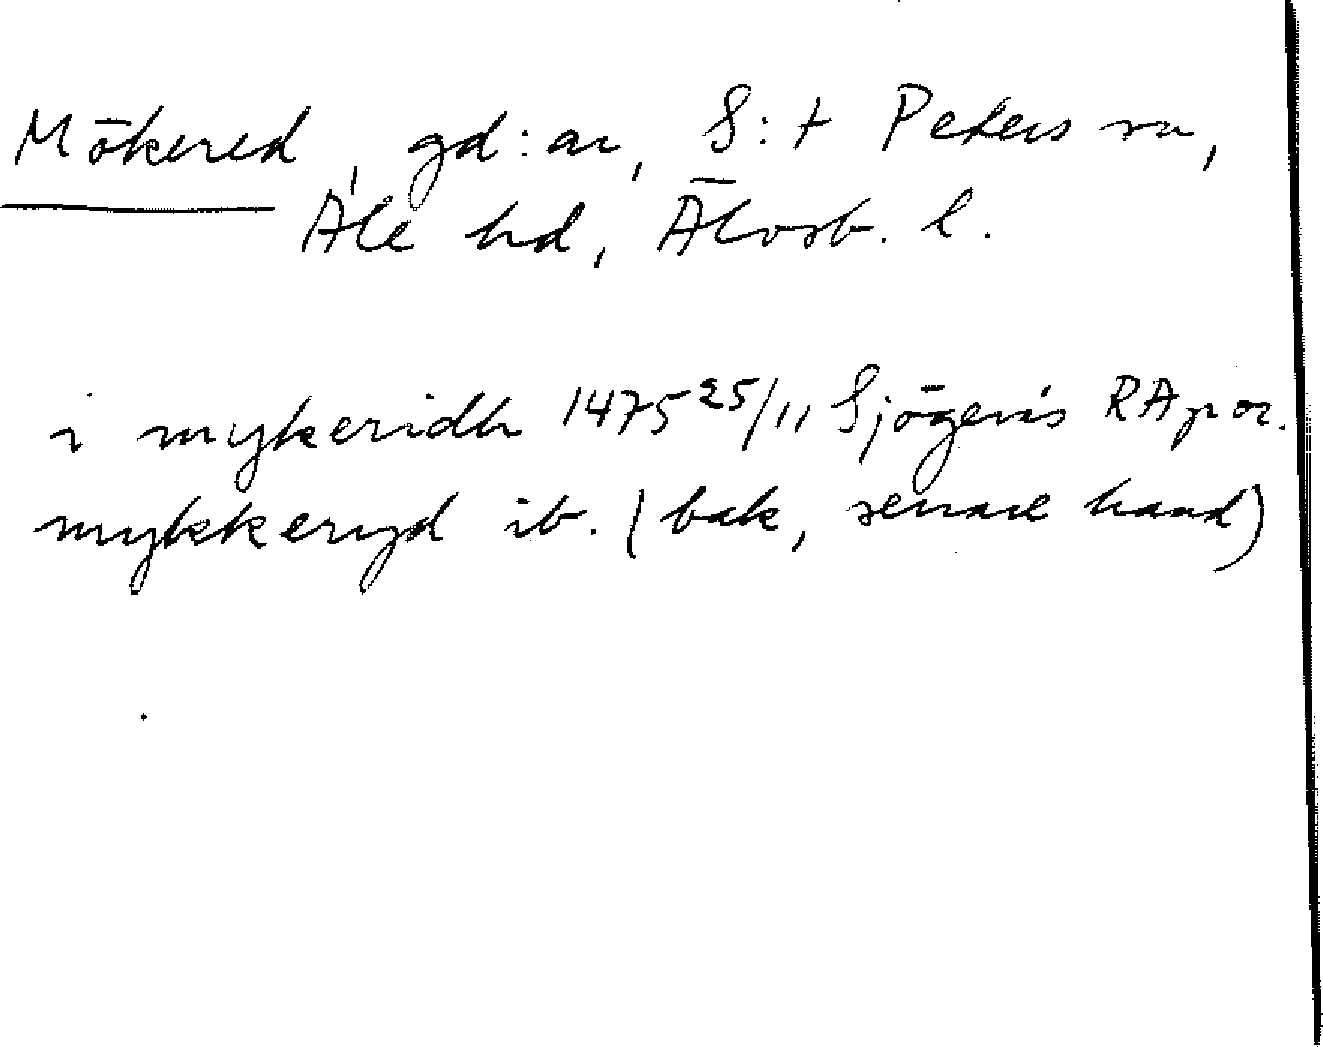 Mökered, gd:ar, S:t Peters sn,
Ale hd, Älvsb. l.
i mykeridh 1475 25/11 Sjögerås RAp or.
mykkeryd ib. (bak, senare hand)